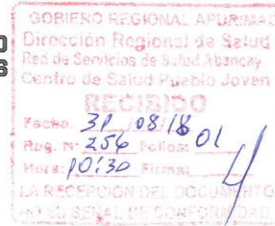 GOBIERNO REGIONAL APURIMAC
Dirección Regional de Salud
Red de Servicios de Salud Abancay
Centro de Salud Pueblo Joven
RECIBIDO
Fecha: 31 08 18
Reg. N° 256 Folios: 01
Hora: 10:30 Firma:
LA RECEPCION DEL DOCUMENTO
NO ES SEÑAL DE CONFORMIDAD
O
S